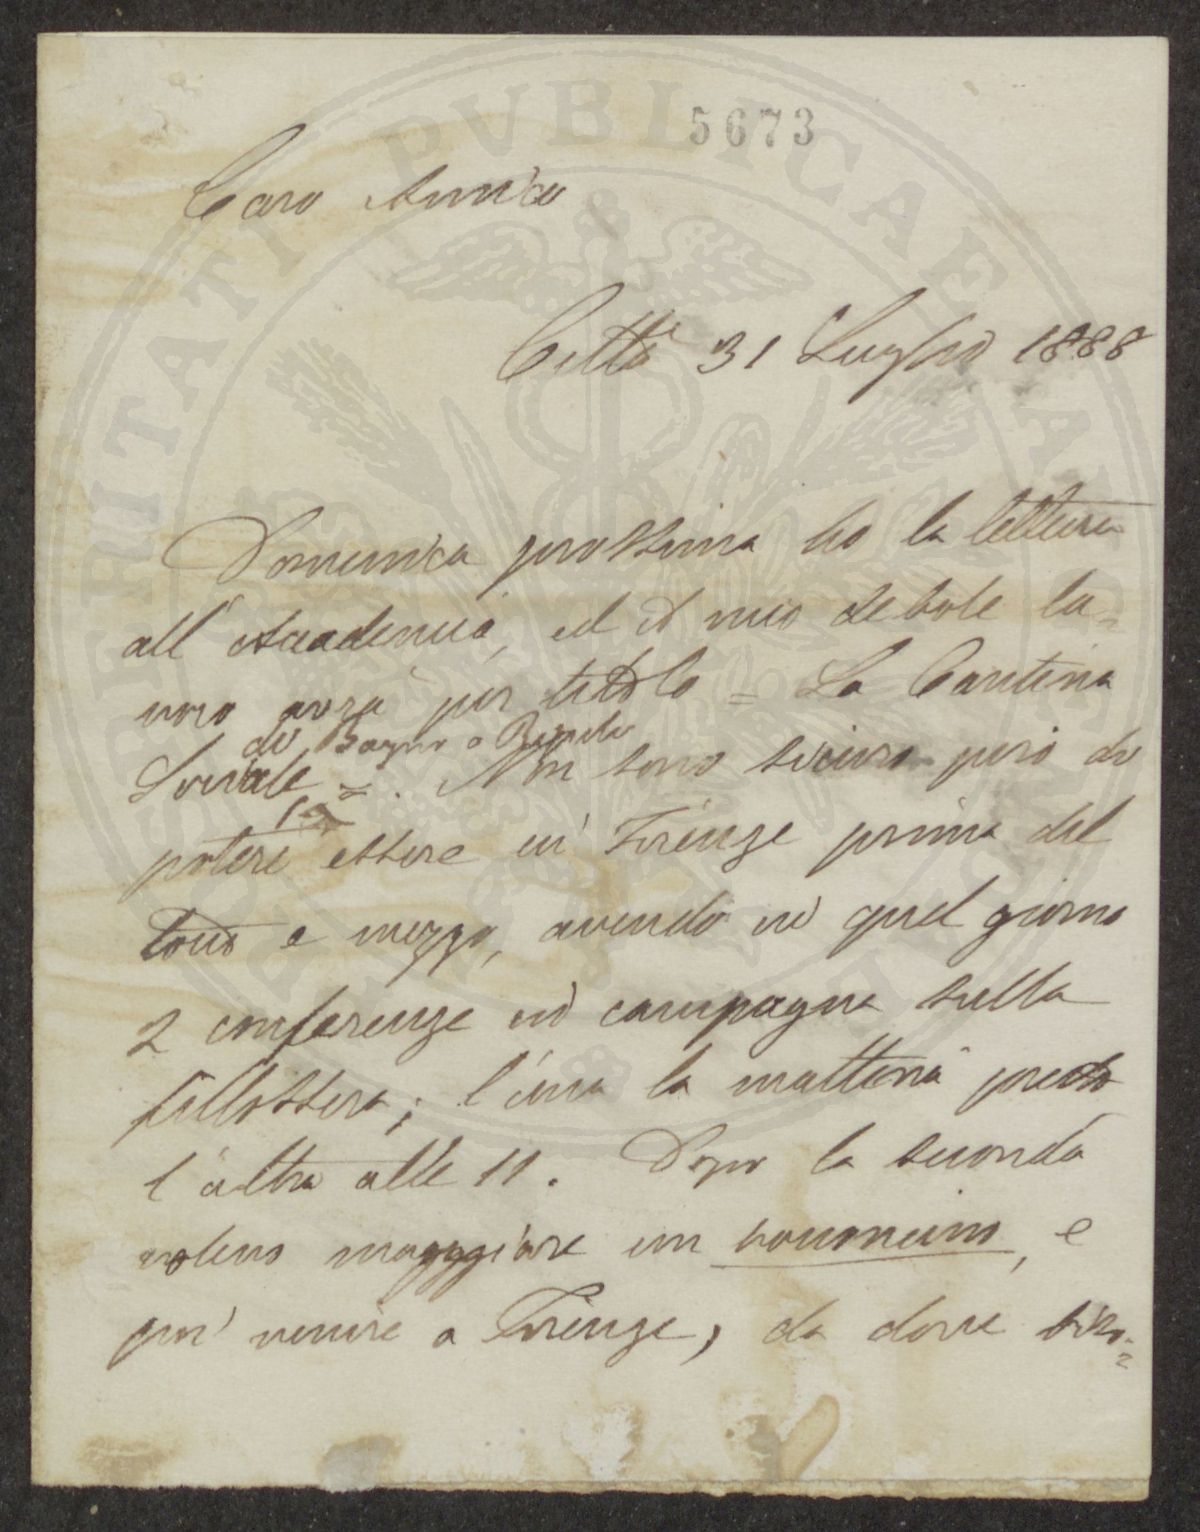 5673
Caro Amico
Città 31 Luglio 1888
Domenica prossima ho la lettura
all'Accademia, ed il mio debole la=
voro avrà per titolo = La Cantina
di Bagno a Ripoli
Sociale =. Non sono sicuro però di
potere essere in Firenze prima del
tocco e mezzo, avendo in quel giorno
2 conferenze in campagna sulla
fillossera; l'una la mattina presto
l'altra alle 11. Dopo la seconda
volevo mangiare un bocconcino, e
poi venire a Firenze, da dove